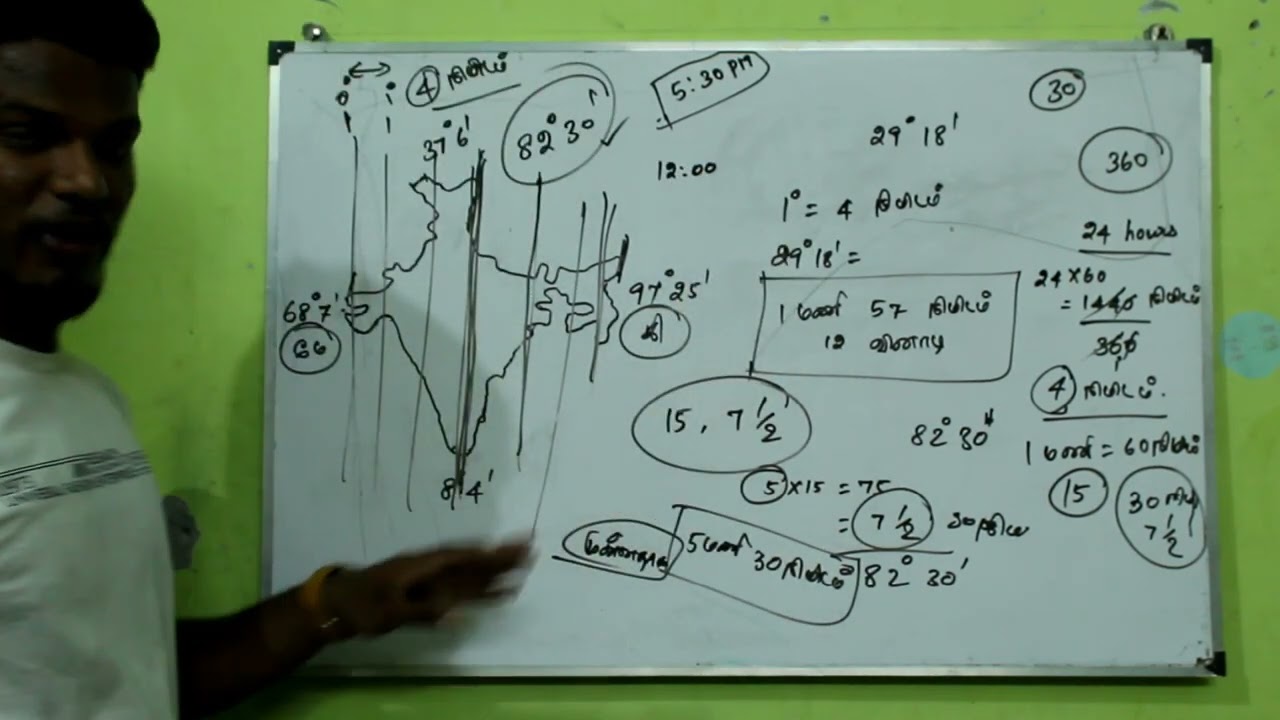 0° 1°
4 நிமிடம்
37° 6'
82° 30'
5:30 PM
12:00
68° 7'
97° 25'
கி
8° 4'
29° 18'
1° = 4 நிமிடம்
29° 18' =
1 மணி 57 நிமிடம்
12 வினாடி
15, 7 1/2
82° 30'
5 × 15 = 75
= 7 1/2
5 மணி
30 நிமிடம்
82° 30'
30
360
24 hours
24 × 60
= 1440 நிமிடம்
360
4 நிமிடம்.
1 மணி = 60 நிமிடம்
15
30 நிமி
7 1/2